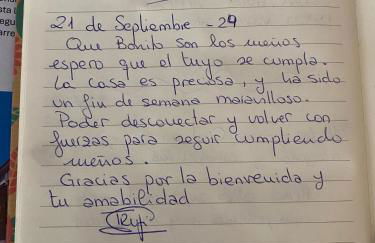 21 de Septiembre -24
Que Bonito son los sueños
espero que el tuyo se cumpla.
La casa es preciosa, y ha sido
un fin de semana maravilloso.
Poder desconectar y volver con
fuerzas para seguir cumpliendo
sueños.
Gracias por la bienvenida y
tu amabilidad